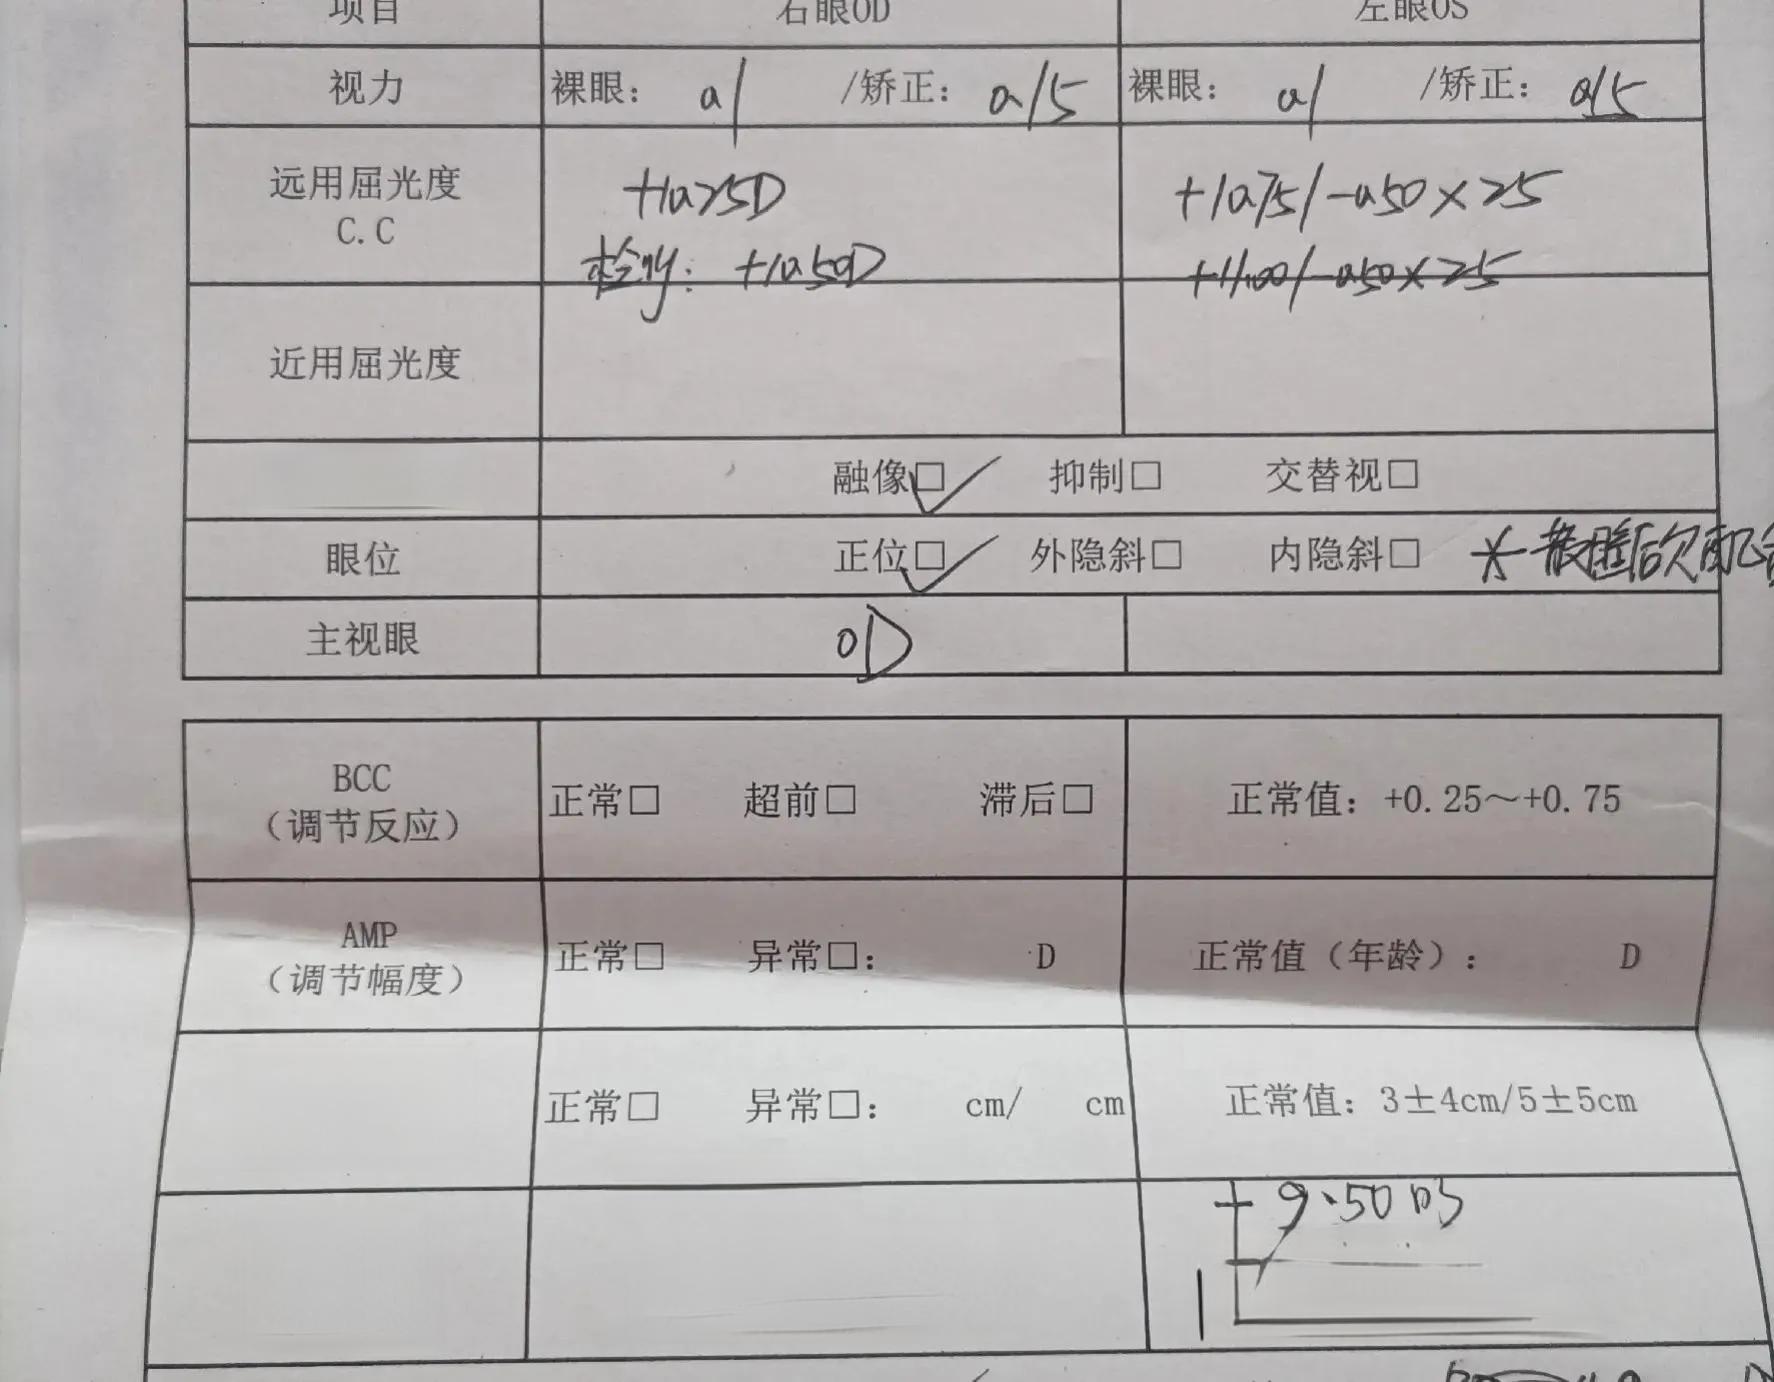 项目 右眼OD 左眼OS
视力 裸眼: a/ /矫正: a/5 裸眼: a/ /矫正: a/5
远用屈光度 +1a25D +1a75/-a50×25
C.C 检影: +1a50D +11.00/-a50×25
近用屈光度
融像□✓ 抑制□ 交替视□
眼位 正位□✓ 外隐斜□ 内隐斜□ *散瞳后欠配合
主视眼 OD
BCC
(调节反应) 正常□ 超前□ 滞后□ 正常值: +0.25～+0.75
AMP
(调节幅度) 正常□ 异常□: D 正常值(年龄): D
正常□ 异常□: cm/ cm 正常值: 3±4cm/5±5cm
+9.50 DS